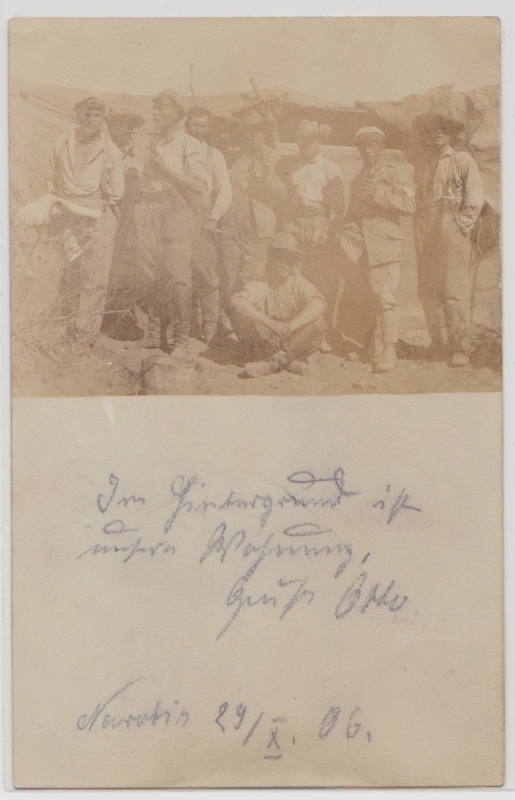 Im Hintergrund ist
unsere Wohnung,
Gruß Otto.
29/X. 06.